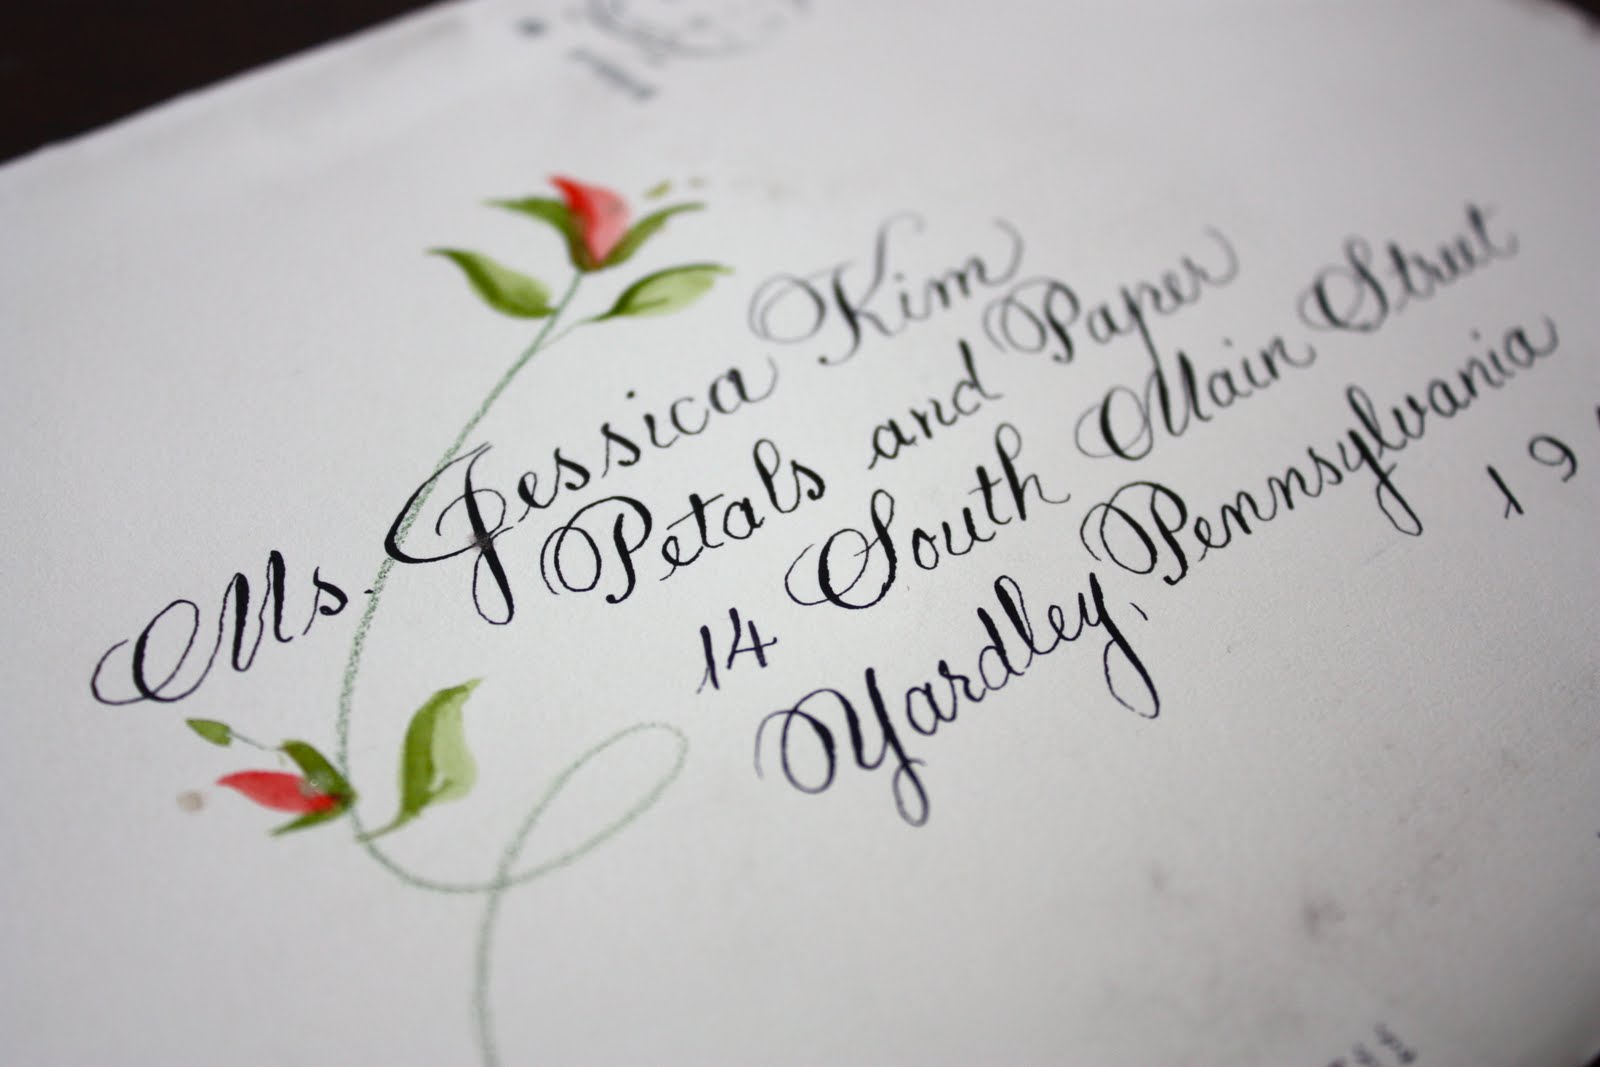 Ms. Jessica Kim
Petals and Paper
14 South Main Street
Yardley, Pennsylvania
19